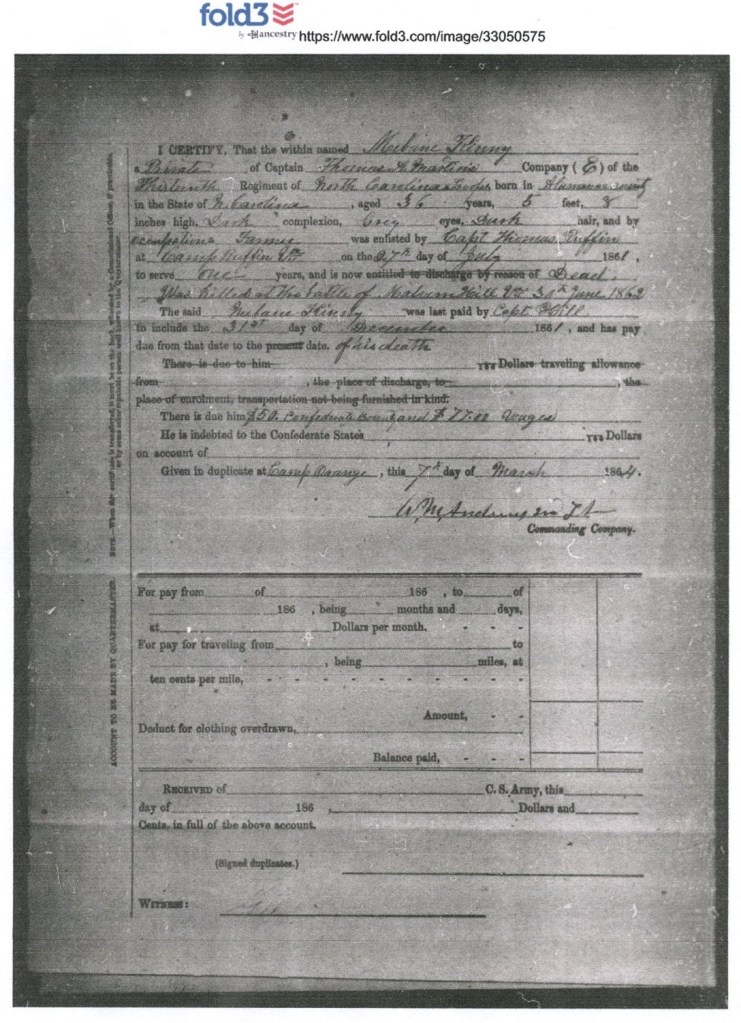 fold3
by ancestry https://www.fold3.com/image/33050575
I CERTIFY, That the within named Mebine Kinny
a Private of Captain Thomas A. Martins Company (E) of the
Thirteenth Regiment of North Carolina Troops, born in Alamance county
in the State of N. Carolina, aged 36 years, 5 feet, 8
inches high, Dark complexion, Grey eyes, Dark hair, and by
occupation a Farmer was enlisted by Capt Thomas Ruffin
at Camp Ruffin Va on the 27th day of July 1861,
to serve One years, and is now entitled to discharge by reason of Dead.
Was killed at the battle of Malvern Hill Va 30th June 1862
The said Mebane Kinny was last paid by Capt Hill
to include the 31st day of December 1861, and has pay
due from that date to the present date. of his death
There is due him Dollars traveling allowance
from , the place of discharge, to , the
place of enrolment, transportation not being furnished in kind.
There is due him $50. Confederate bounty and $77.00 Wages
He is indebted to the Confederate States Dollars
on account of
Given in duplicate at Camp Orange, this 7th day of March 1864.
W. M. Andrews Lt
Commanding Company.
For pay from of 186 , to of
186 , being months and days,
at Dollars per month, - - -
For pay for traveling from to
, being miles, at
ten cents per mile, - - - - - - - - - -
Amount, - -
Deduct for clothing overdrawn,
Balance paid, - - -
RECEIVED of C. S. Army, this
day of 186 , Dollars and
Cents, in full of the above account.
(Signed duplicates.)
WITNESS:
ACCOUNT TO BE MADE BY QUARTERMASTER.